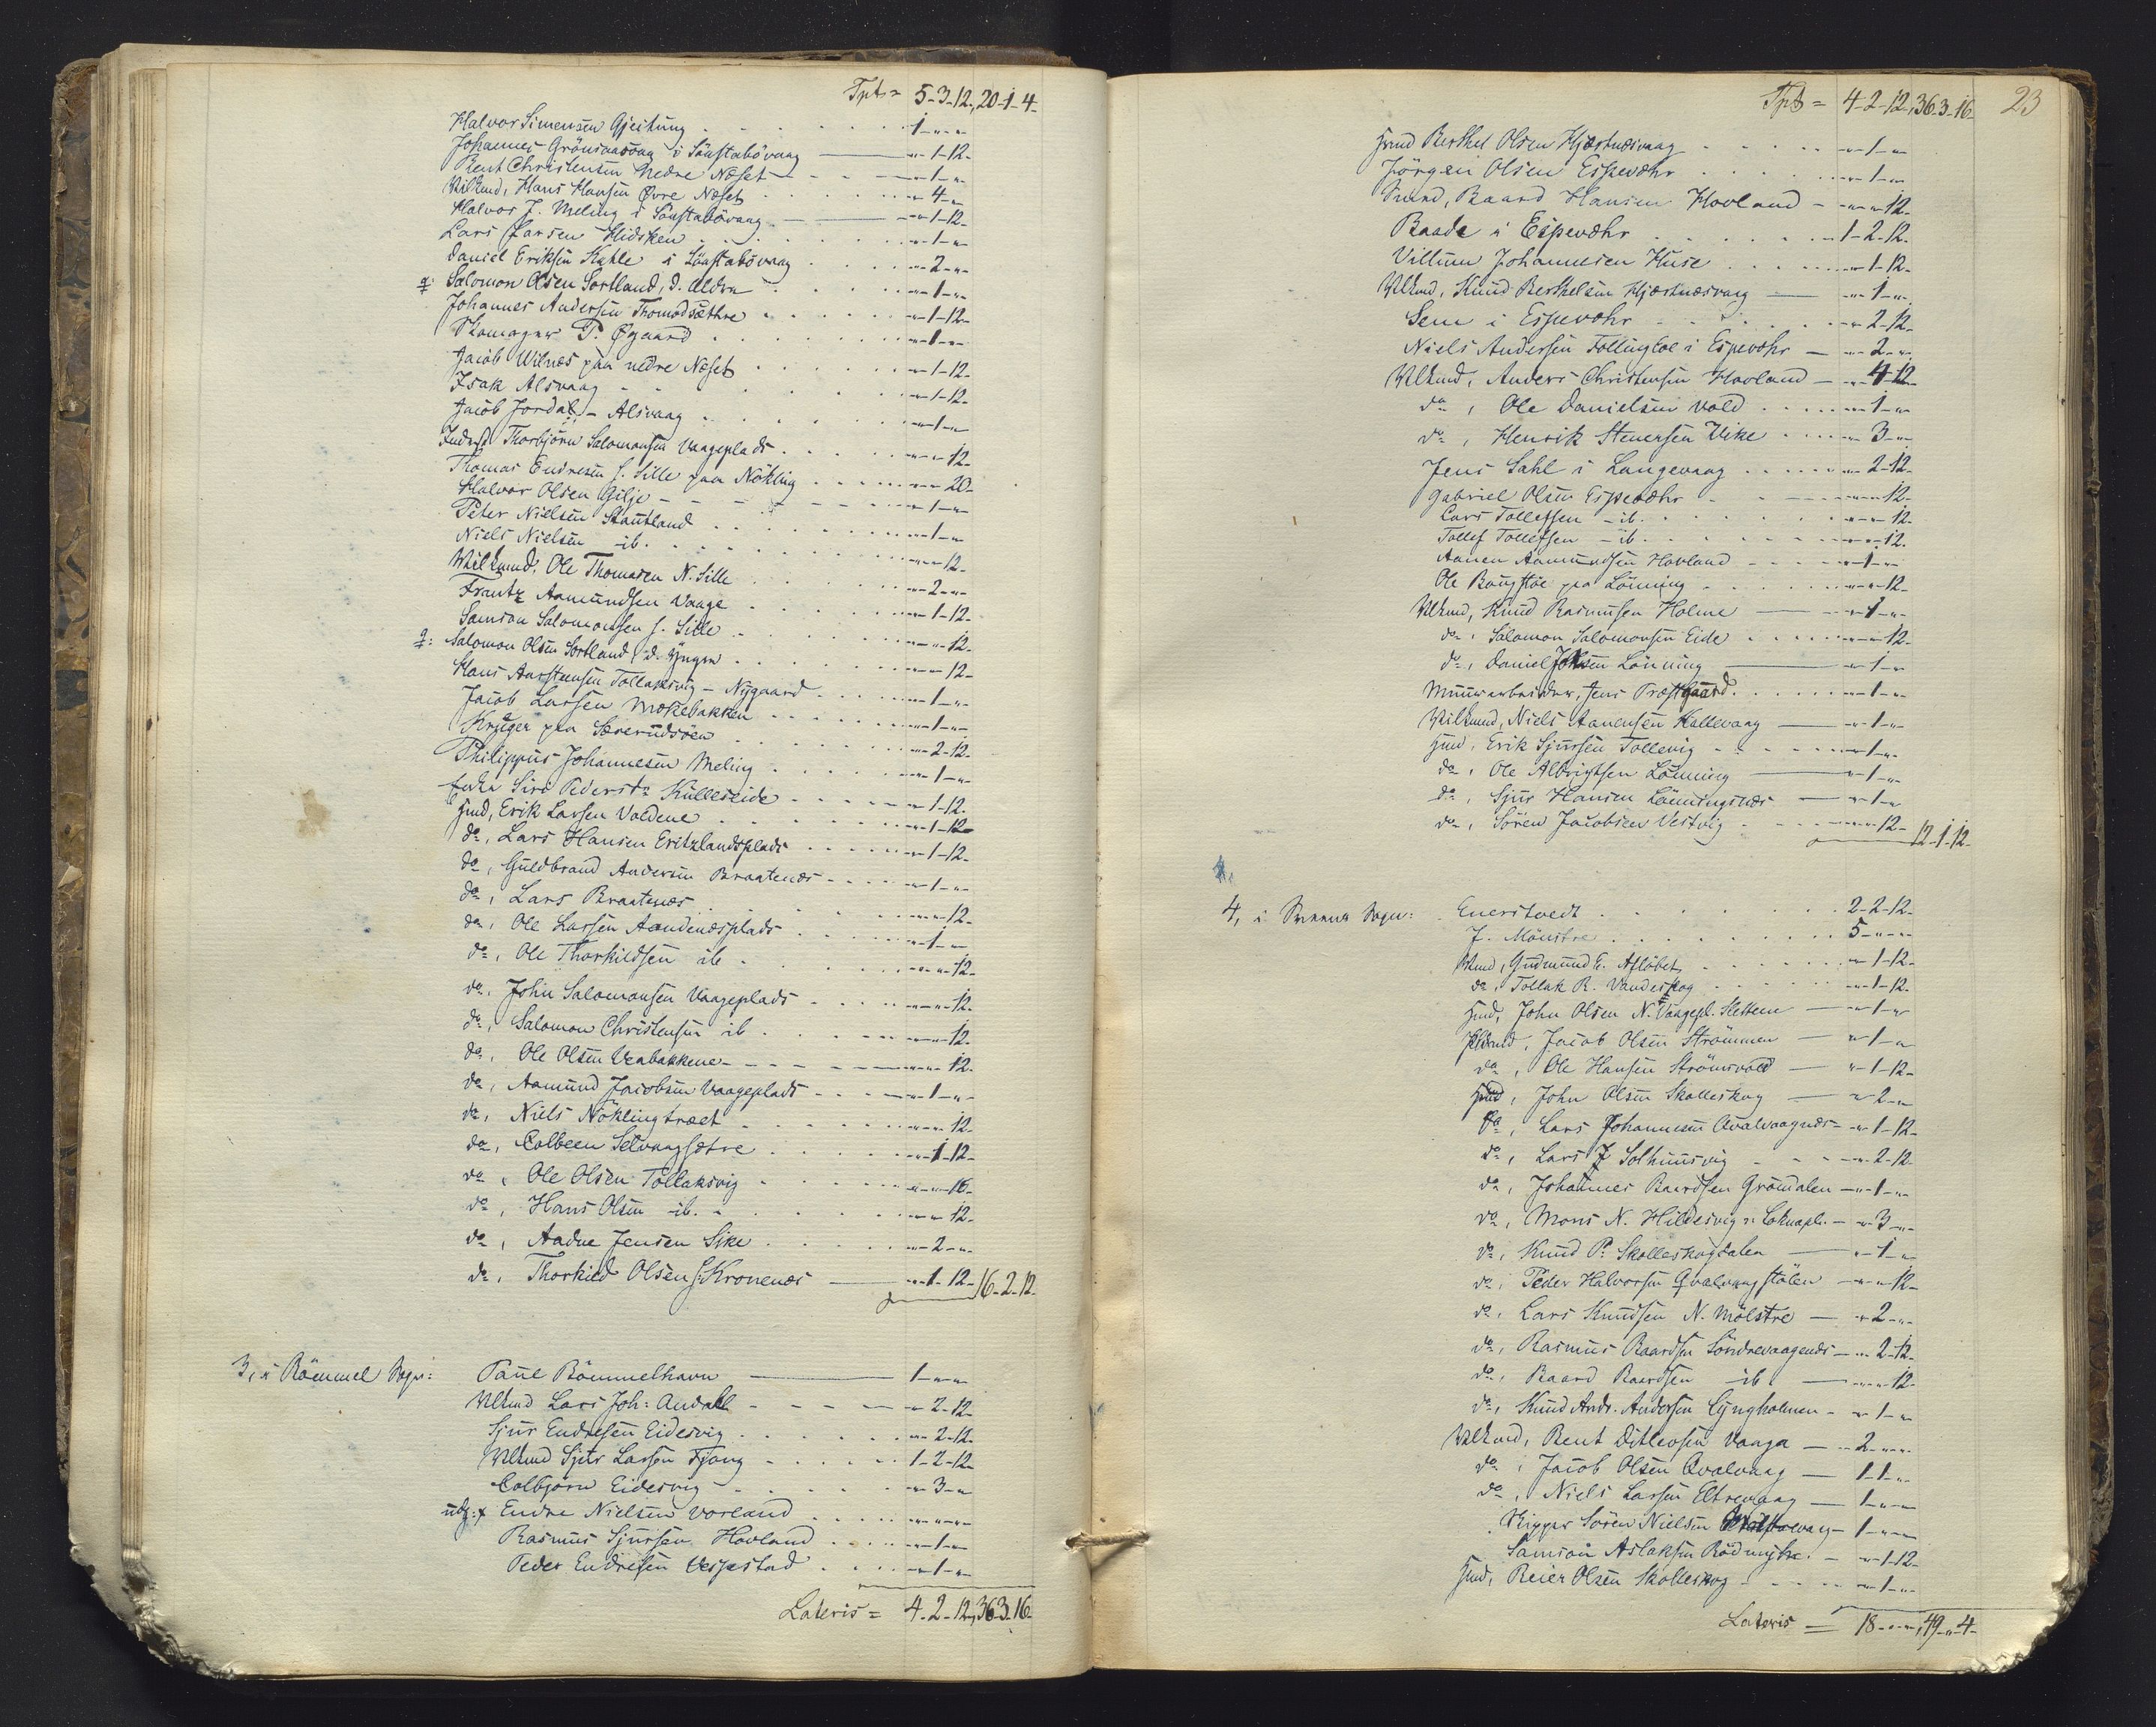 Tpt = 5-3-12, 20-1-4-
Halvor Simensen Gjeitung . . . . 1-"-"-
Johannes Grönnaasvaag i Söustabövaag —— "-1-12-
Bent Christensen Nedre Næset - - - "-1-"-
Uilkmd, Hans Hansen Øvre Næset . . . "-4-"-
Halvor J. Meling i Söustabövaag —— "-1-12-
Lars Larsen Hidsken . . . "-1-"-
Daniel Eriksen Kahle i Söustabövaag . . . "-2-"-
q: Salomon Olsen Sortland, d. Ældre . . . "-1-"-
Johannes Andersen Thomadsæthre . . . "-1-12-
Skomager P. Øgaard . . . "-1-"-
Jacob Wilnæs paa nedre Næset . . . "-1-12-
Isak Alsvaag - - . . . "-1-12-
Jacob Jordal - Alsvaag . . . "-1-"-
Inderst Thorbjörn Salomonsen Vaageplads . . . "-"-12-
Thomas Endresen S. Sille paa Nökling . . . "-"-20-
Halvor Olsen Gilje - - - "-1-"-
Peter Nielsen Stautland . . . "-1-"-
Niels Nielsen -ib. . . . "-"-12-
Uilkmd, Ole Thomasen N. Sille . . . "-2-"-
Frantz Aamundsen Vaage . . . "-1-12-
Samson Salomonsen S. Sille . . . "-"-12-
q: Salomon Olsen Sortland, d. Yngre . . . "-"-12-
Hans Aarstensen Tollaksvig - Nygaard . . . "-1-"-
Jacob Larsen Mokebakken . . . "-1-"-
Kryger paa Særerudsöen . . . "-2-12-
Philippus Johannesen Meling . . . "-1-"-
Enke Siri Pedersd:r Kulleseide . . . "-1-12-
Hmd, Erik Larsen Valdene . . . "-1-12-
do, Lars Hansen Eritzlandsplads . . . "-1-12-
do, Guldbrand Andersen Braatenæs . . . "-1-"-
do, Lars Braatenæs . . . "-"-12-
do, Ole Larsen Aandenæsplads . . . "-1-"-
do, Ole Thorkildsen ib . . . "-"-12-
do, John Salomonsen Vaageplads . . . "-"-12-
do, Salomon Christensen ib . . . "-"-12-
do, Ole Olsen Veabakkene - - - "-"-12-
do, Aamund Jacobsen Vaageplads - - - "-1-"-
do, Niels Nöklingtræet . . . "-"-12-
do, Colbeen Selvaagsætre . . . "-1-12-
do, Ole Olsen Tollaksvig . . . "-"-16-
do, Hans Olsen -ib. . . . "-"-12-
do, Aadne Jensen Sike . . . "-2-"-
do, Thorkild Olsen S: Kronenæs —— "-1-12- 16-2-12-
3, i Bömmel Sogn: Paul Bömmelhavn —— 1-"-"-
Ulkmd Lars Joh: Andahl - - - "-2-12-
Sjur Endresen Eidesvig . . . "-2-12-
Ulkmd Sjur Larsen Fjong . . . 1-2-12-
Colbjörn Eidesvig . . . "-3-"-
udg: x Endre Nielsen Vorland . . . "-"-"-
Rasmus Sjursen Hovland . . . "-1-"-
Peder Endresen Vespestad . . . "-1-"-
Lateris = 4-2-12, 36-3-16-
23
Tpt = 4-2-12, 36-3-16-
Hmd Berthel Olsen Hjærtnæsvaag . . . "-1-"-
Jörgen Olsen Espevæhr . . . "-1-"-
Baard Hansen Hovland - "-"-12-
Baade i Espevæhr . . . 1-2-12-
Villum Johannesen Huse . . . "-1-12-
Ulkmd, Knud Berthelsen Hjærtnæsvaag —— "-1-"-
Sem i Espevæhr . . . "-2-12-
Niels Andersen Follingloe i Espevæhr — "-2-"-
Ulkmd, Anders Christensen Hovland — "-4-12-
do, Ole Danielsen Vold . . . "-1-"-
do, Henrik Stenersen Vike . . . "-3-"-
Jens Sahl i Langevaag . . . "-2-12-
Gabriel Olsen Espevæhr - - "-"-12-
Lars Tollefsen -ib. . . . "-"-12-
Tollef Tollefsen -ib. . . . "-"-12-
Aanen Aamundsen Hovland - - - "-1-"-
Ole Baugstöe paa Lönning . . . "-"-12-
Ulkmd, Knud Rasmussen Holme —— "-1-"-
do, Salomon Salomonsen Eide . . . "-"-12-
do, Daniel Johnsen Lönning —— "-1-"-
Muurarbeider, Jens Præstgaard . . . "-1-"-
Uilkmd, Niels Aanensen Kallevaag —— "-1-"-
Hmd, Erik Sjursen Tollevig . . . "-1-"-
do, Ole Albrigtsen Lönning —— "-1-"-
do, Sjur Hansen Lönningsnæs — "-1-"-
do, Sören Jacobsen Vestvig . . . "-"-12- 12-1-12-
4, i Sogn: Enerstvedt . . . 2-2-12-
J. Mönstre . . . 5-"-"-
Ulkmd, Gudmund E. Aflöbet . . . "-1-12-
do, Tollak R. Vandeskog . . . "-1-12-
Hmd, John Olsen N. Vaagepl. Slettene — "-1-"-
Jacob Olsen Strömmen — "-1-"-
do, Ole Hansen Strömsvold — "-1-12-
Hmd, John Olsen Skolleskog — "-2-"-
do, Lars Johannesen Qvalvaagnæs - "-1-12-
do, Lars J Solhuusvig - - - "-2-12-
do, Johannes Baardsen Gröndalen - "-1-"-
do, Mons N. Hildesvig - "-3-"-
do, Knud P: Skolleskogdalen —— "-1-"-
do, Peder Halvorsen Qvalvaagstölen — "-"-12-
do, Lars Knudsen N. Mölstre — "-2-"-
do, Rasmus Baardsen Söndrevaagenæs - "-2-12-
do, Baard Baardsen ib. —— "-"-12-
do, Knud Andr. Andersen Lyngholmen - "-1-"-
Ulkmd, Bent Ditlevsen Vaage — "-2-"-
do, Jacob Olsen Qvalvaag — 1-1-"-
do, Niels Larsen Eltrevaag — 1-"-"-
Skipper Sören Nielsen - 1-"-"-
Samson Aslaksen Rödmyhr - "-1-12-
Hmd, Reier Olsen Skolleskog - - - "-1-"-
Lateris = 18-"-", 49-"-4-